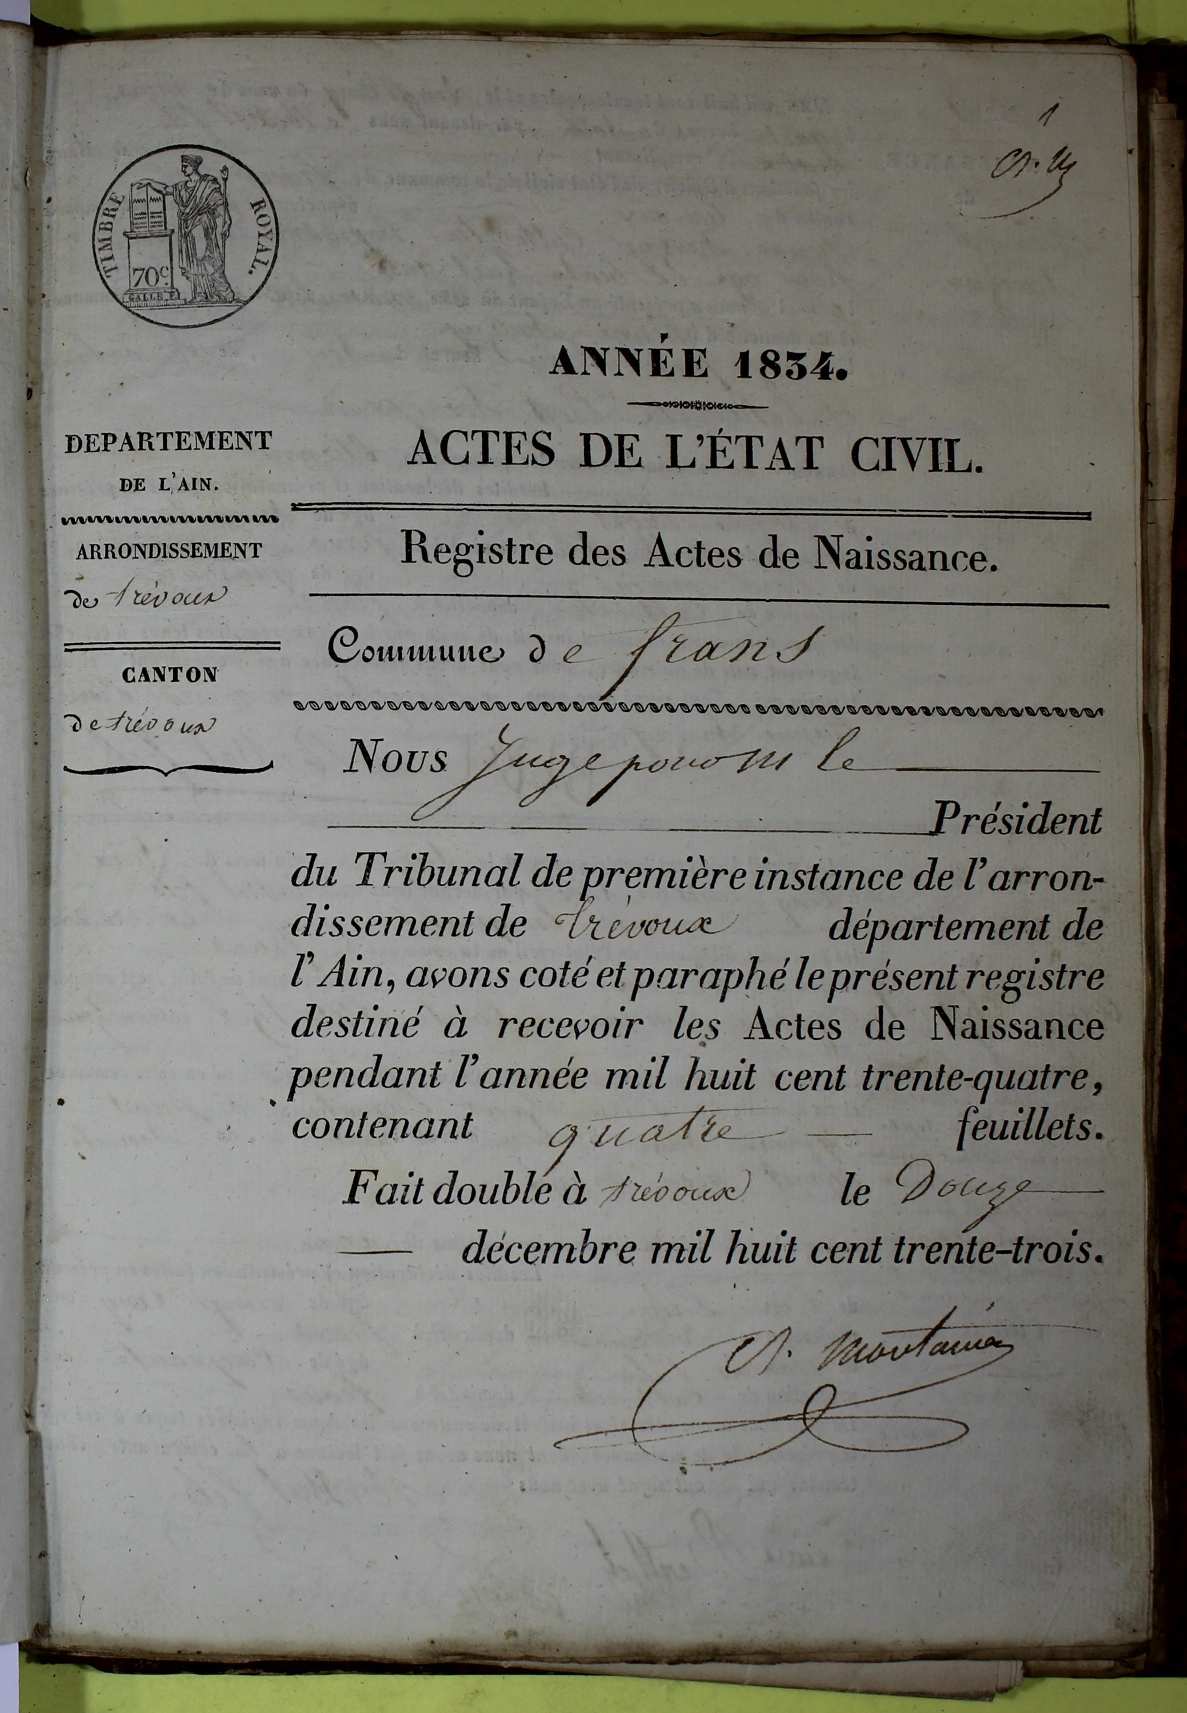 1
TIMBRE ROYAL.
70c.
ANNÉE 1834.
ACTES DE L'ÉTAT CIVIL.
DEPARTEMENT
DE L'AIN.
ARRONDISSEMENT
de trévoux
CANTON
de trévoux
Registre des Actes de Naissance.
Commune de frans
Nous Juge pour le
Président
du Tribunal de première instance de l'arron-
dissement de trévoux département de
l'Ain, avons coté et paraphé le présent registre
destiné à recevoir les Actes de Naissance
pendant l'année mil huit cent trente-quatre,
contenant quatre feuillets.
Fait double à trévoux le Douze
décembre mil huit cent trente-trois.